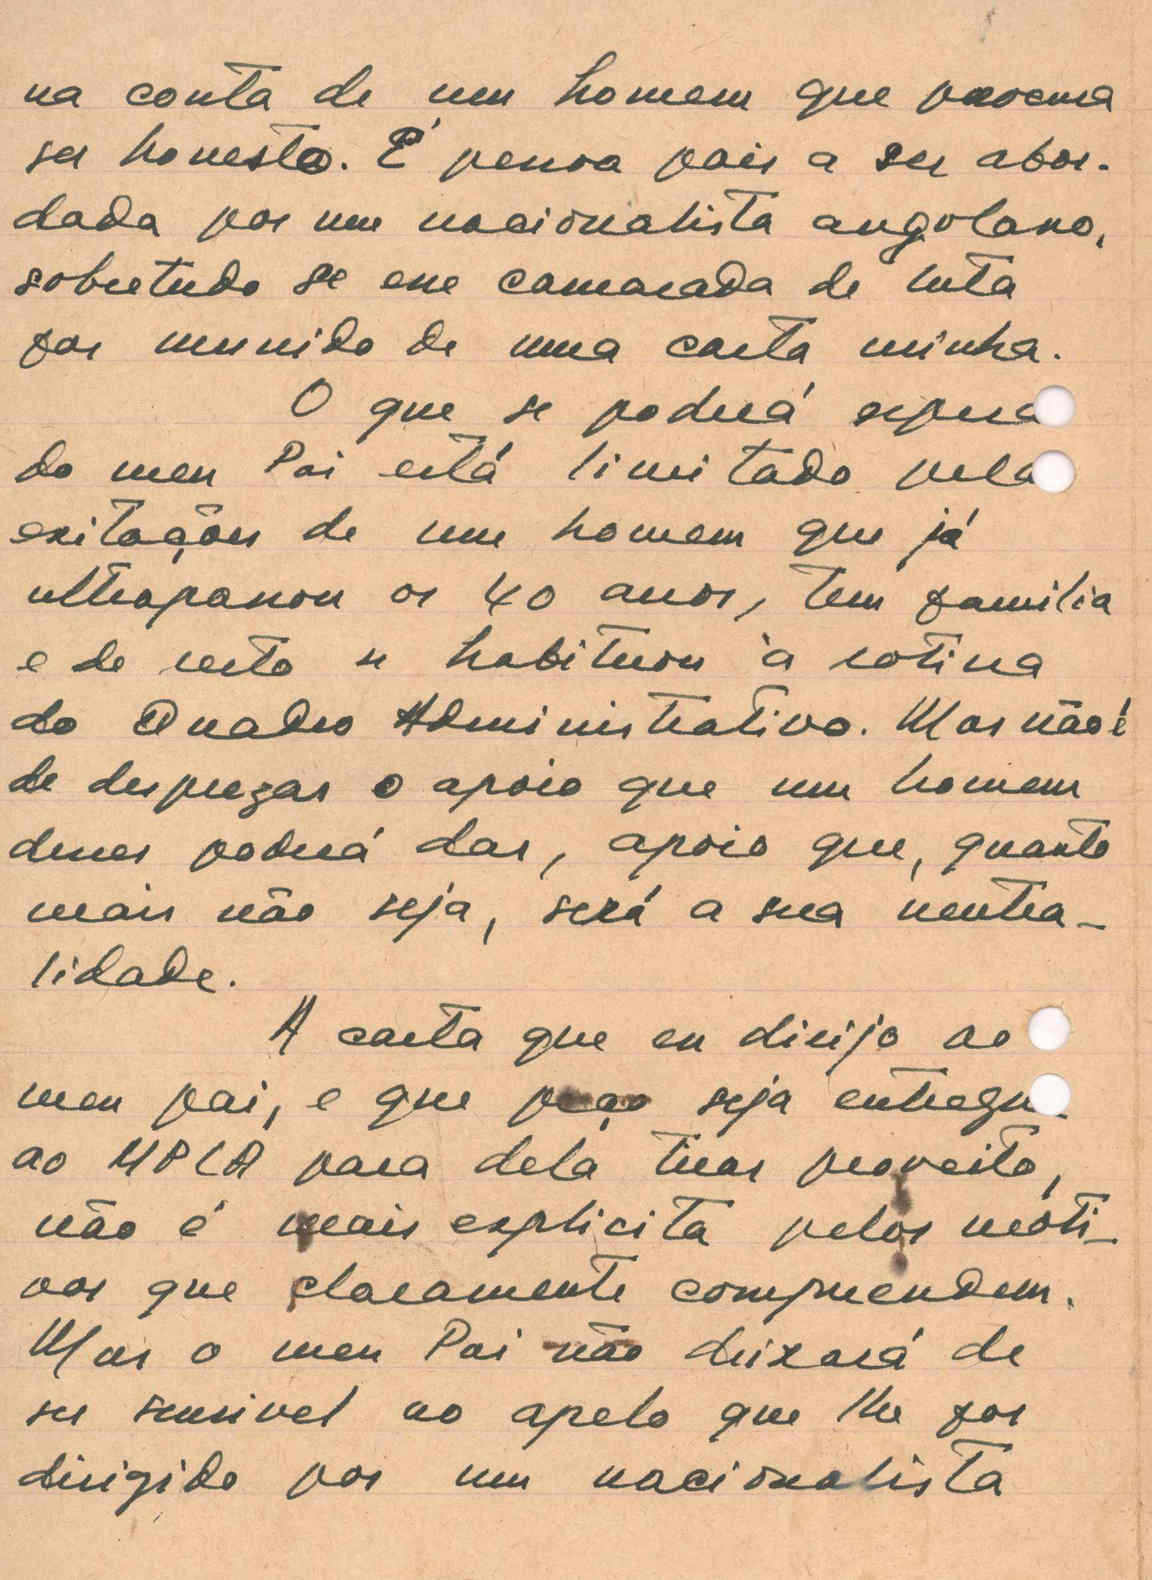 na conta de um homem que procura
ser honesto. É pessoa pois a ser abor-
dada por um nacionalista angolano,
sobretudo se esse camarada de luta
for munido de uma carta minha.
O que se poderá espera
do meu Pai está limitado pela
exitações de um homem que já
ultrapassou os 40 anos, tem familia
e de resto se habituou à rotina
do Quadro Administrativo. Mas não é
de desprezar o apoio que um homem
desses poderá dar, apoio que, quanto
mais não seja, será a sua neutra-
lidade.
A carta que eu dirijo ao
meu pai, e que peço seja entregu
ao MPLA para dela tirar proveito,
não é mais explicita pelos moti-
vos que claramente compreendem.
Mas o meu Pai não deixará de
ser sensivel ao apelo que lhe for
dirigido por um nacionalista